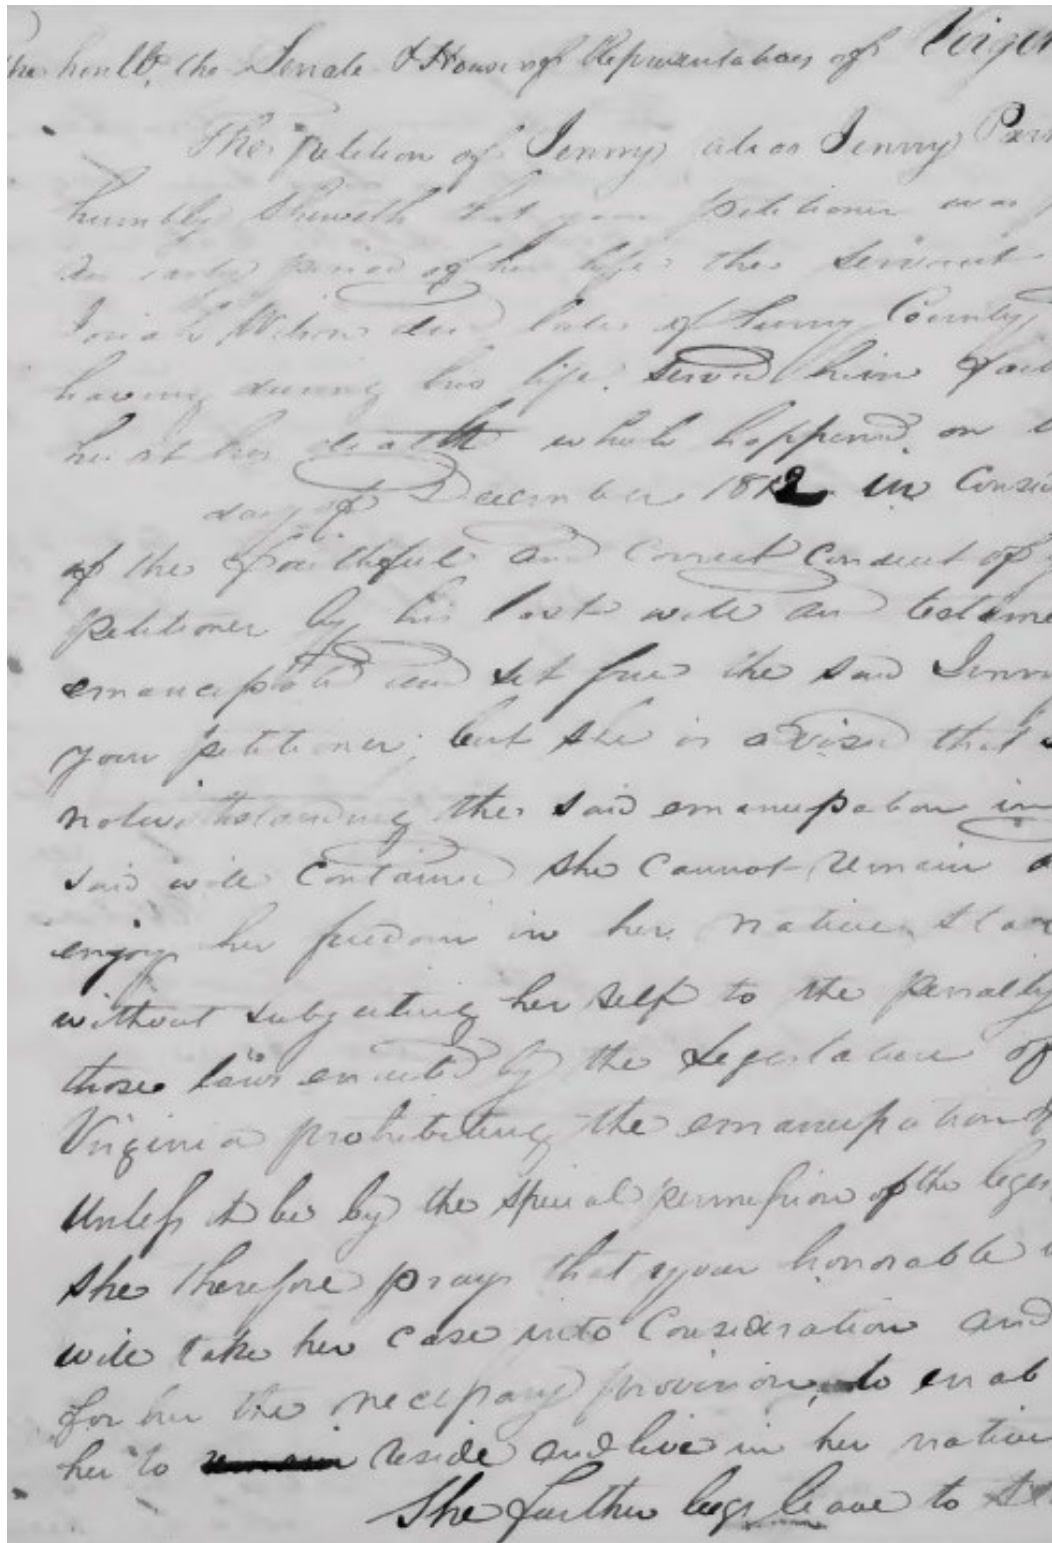 the honlb. the Senate & House of Representatives of Virgin
The petition of Jenny alias Jenny Par
humbly sheweth that your petitioner was
an early period of her life the servant
Josiah Wilson decd late of Surry County,
having during his life served him faith
he at his death which happened on
day of December 1812 in Consid
of the faithful and correct conduct of
petitioner by his last will and testame
emancipated and set free the said Jenny
your petitioner; but she is avised that
notwithstanding the said emancipation in
said will contained she cannot remain
enjoy her freedom in her native stat
without subjecting her self to the penalty
those laws enacted by the Legislature of
Virginia prohibiting the emancipation
Unless it be by the special permission of the legis
she therefore prays that your honorable
will take her case into consideration and
for her the necessary provision, to enab
her to reside and live in her native
She further begs leave to